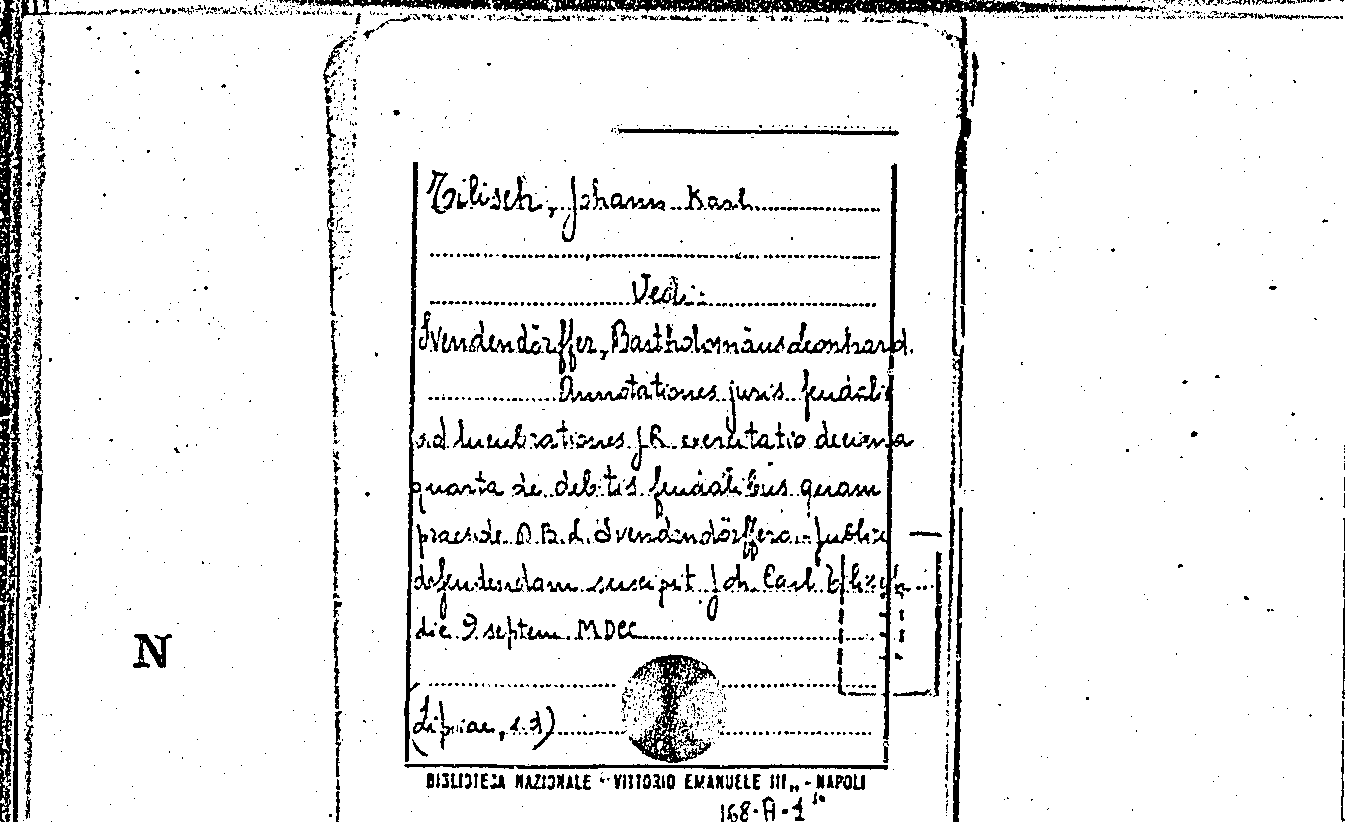 Tilisch, Johann Karl
Vedi:
Svendendörffer, Bartholomäus Leonhard.
Annotationes juris feudalis
ad lucubrationes J.R. exercitatio decima
quarta de debitis feudalibus quam
praeside D.B.L. Svendendörffero.. publice
defendendam suscipit Joh. Carl
die 9 septem MDCC
(Lipsiae, s.d)
N
BIBLIOTECA NAZIONALE "VITTORIO EMANUELE III" - NAPOLI
168-A-1